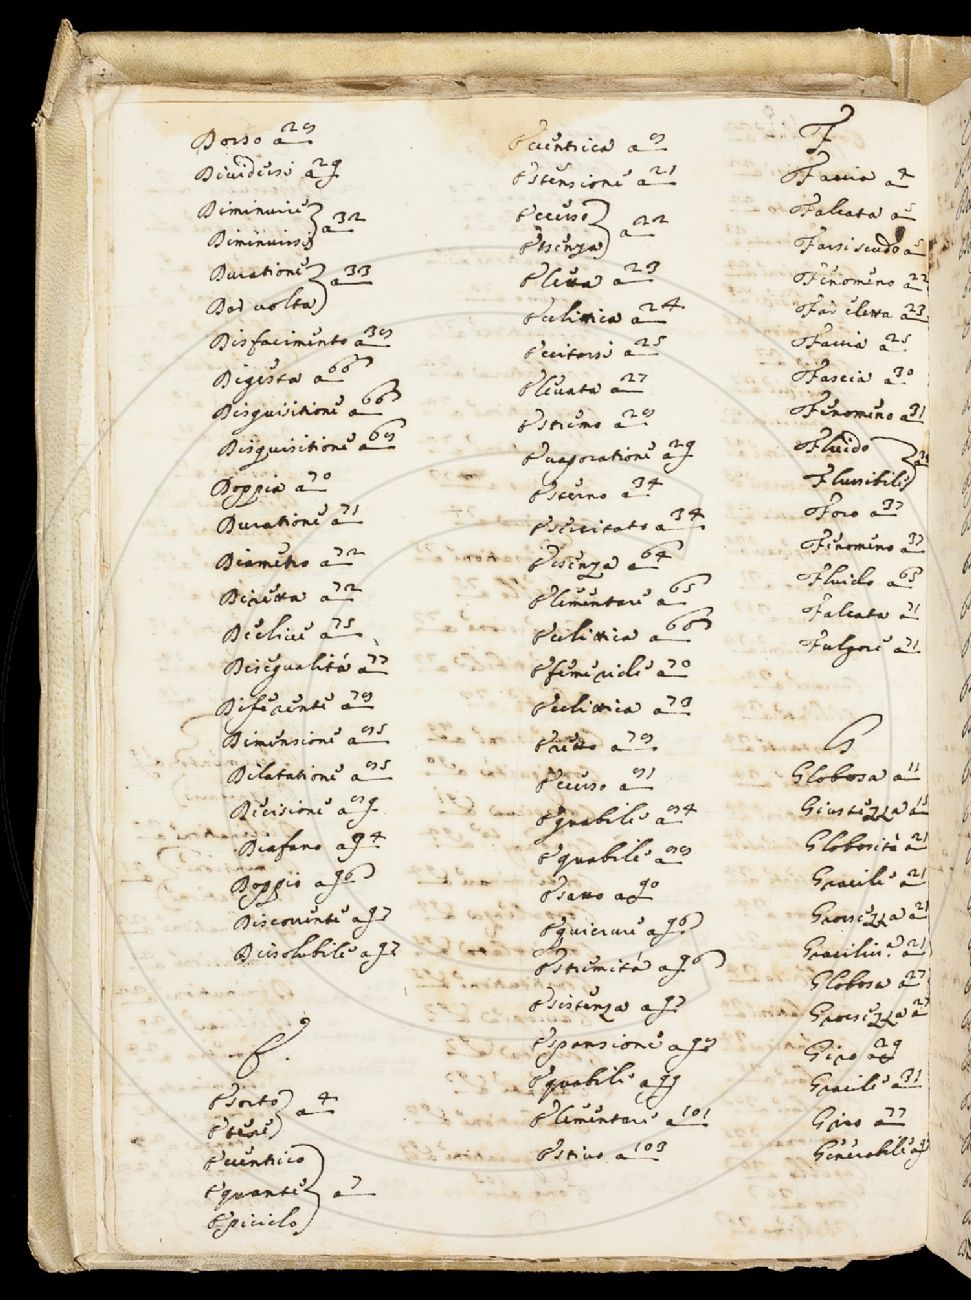 Dorso a 28
Dividersi a 29
Diminuire
Diminuirsi a 32
Duratione
Dar uolta a 33
Disfacimento a 38
Digesta a 66
Disquisitione a 66
Disquisitione a 68
Doppia a 70
Duratione a 71
Diametro a 72
Diretta a 72
Declive a 75
Disegualità a 77
Diferente a 78
Dimensione a 85
Dilatatione a 85
Decisione a 89
Diafano a 94
Doppio a 96
Discorrente a 97
Dissolubile a 97
E.
Esorto
Etere a 4
Eccentrico
Equante
Epiciclo a 7
Eccentrica a 8
Estensione a 21
Eccesso
Essenza a 22
Eletta a 23
Eclittica a 24
Eccitarsi a 25
Elevata a 27
Estremo a 28
Evaporatione a 29
Eterno a 34
Esercitato a 34
Essenza a 64
Elementare a 65
Eclittica a 66
Efemeride a 70
Eclittica a 73
Eretto a 78
Eccesso a 81
Equabile a 84
Equabile a 88
Esatto a 90
Equicrure a 96
Estremità a 96
Esistenza a 97
Espansione a 98
Equabile a 99
Elementare a 101
Estivo a 103
F
Faccia a 4
Falcata a 5
Farsi scudo a 5
Fenomeno a 22
Far eletta a 23
Faccia a 25
Fascia a 30
Fenomeno a 31
Fluido
Flussibile
Foro a 37
Fenomeno a 37
Fluido a 65
Falcata a 71
Fulgore a 71
G
Globosa a 11
Giustezza a 15
Globosità a 21
Gracile a 21
Grossezza a 21
Globosa a 27
Grossezza a 27
Giro a 29
Gracile a 31
Giro a 77
Generabile a 9